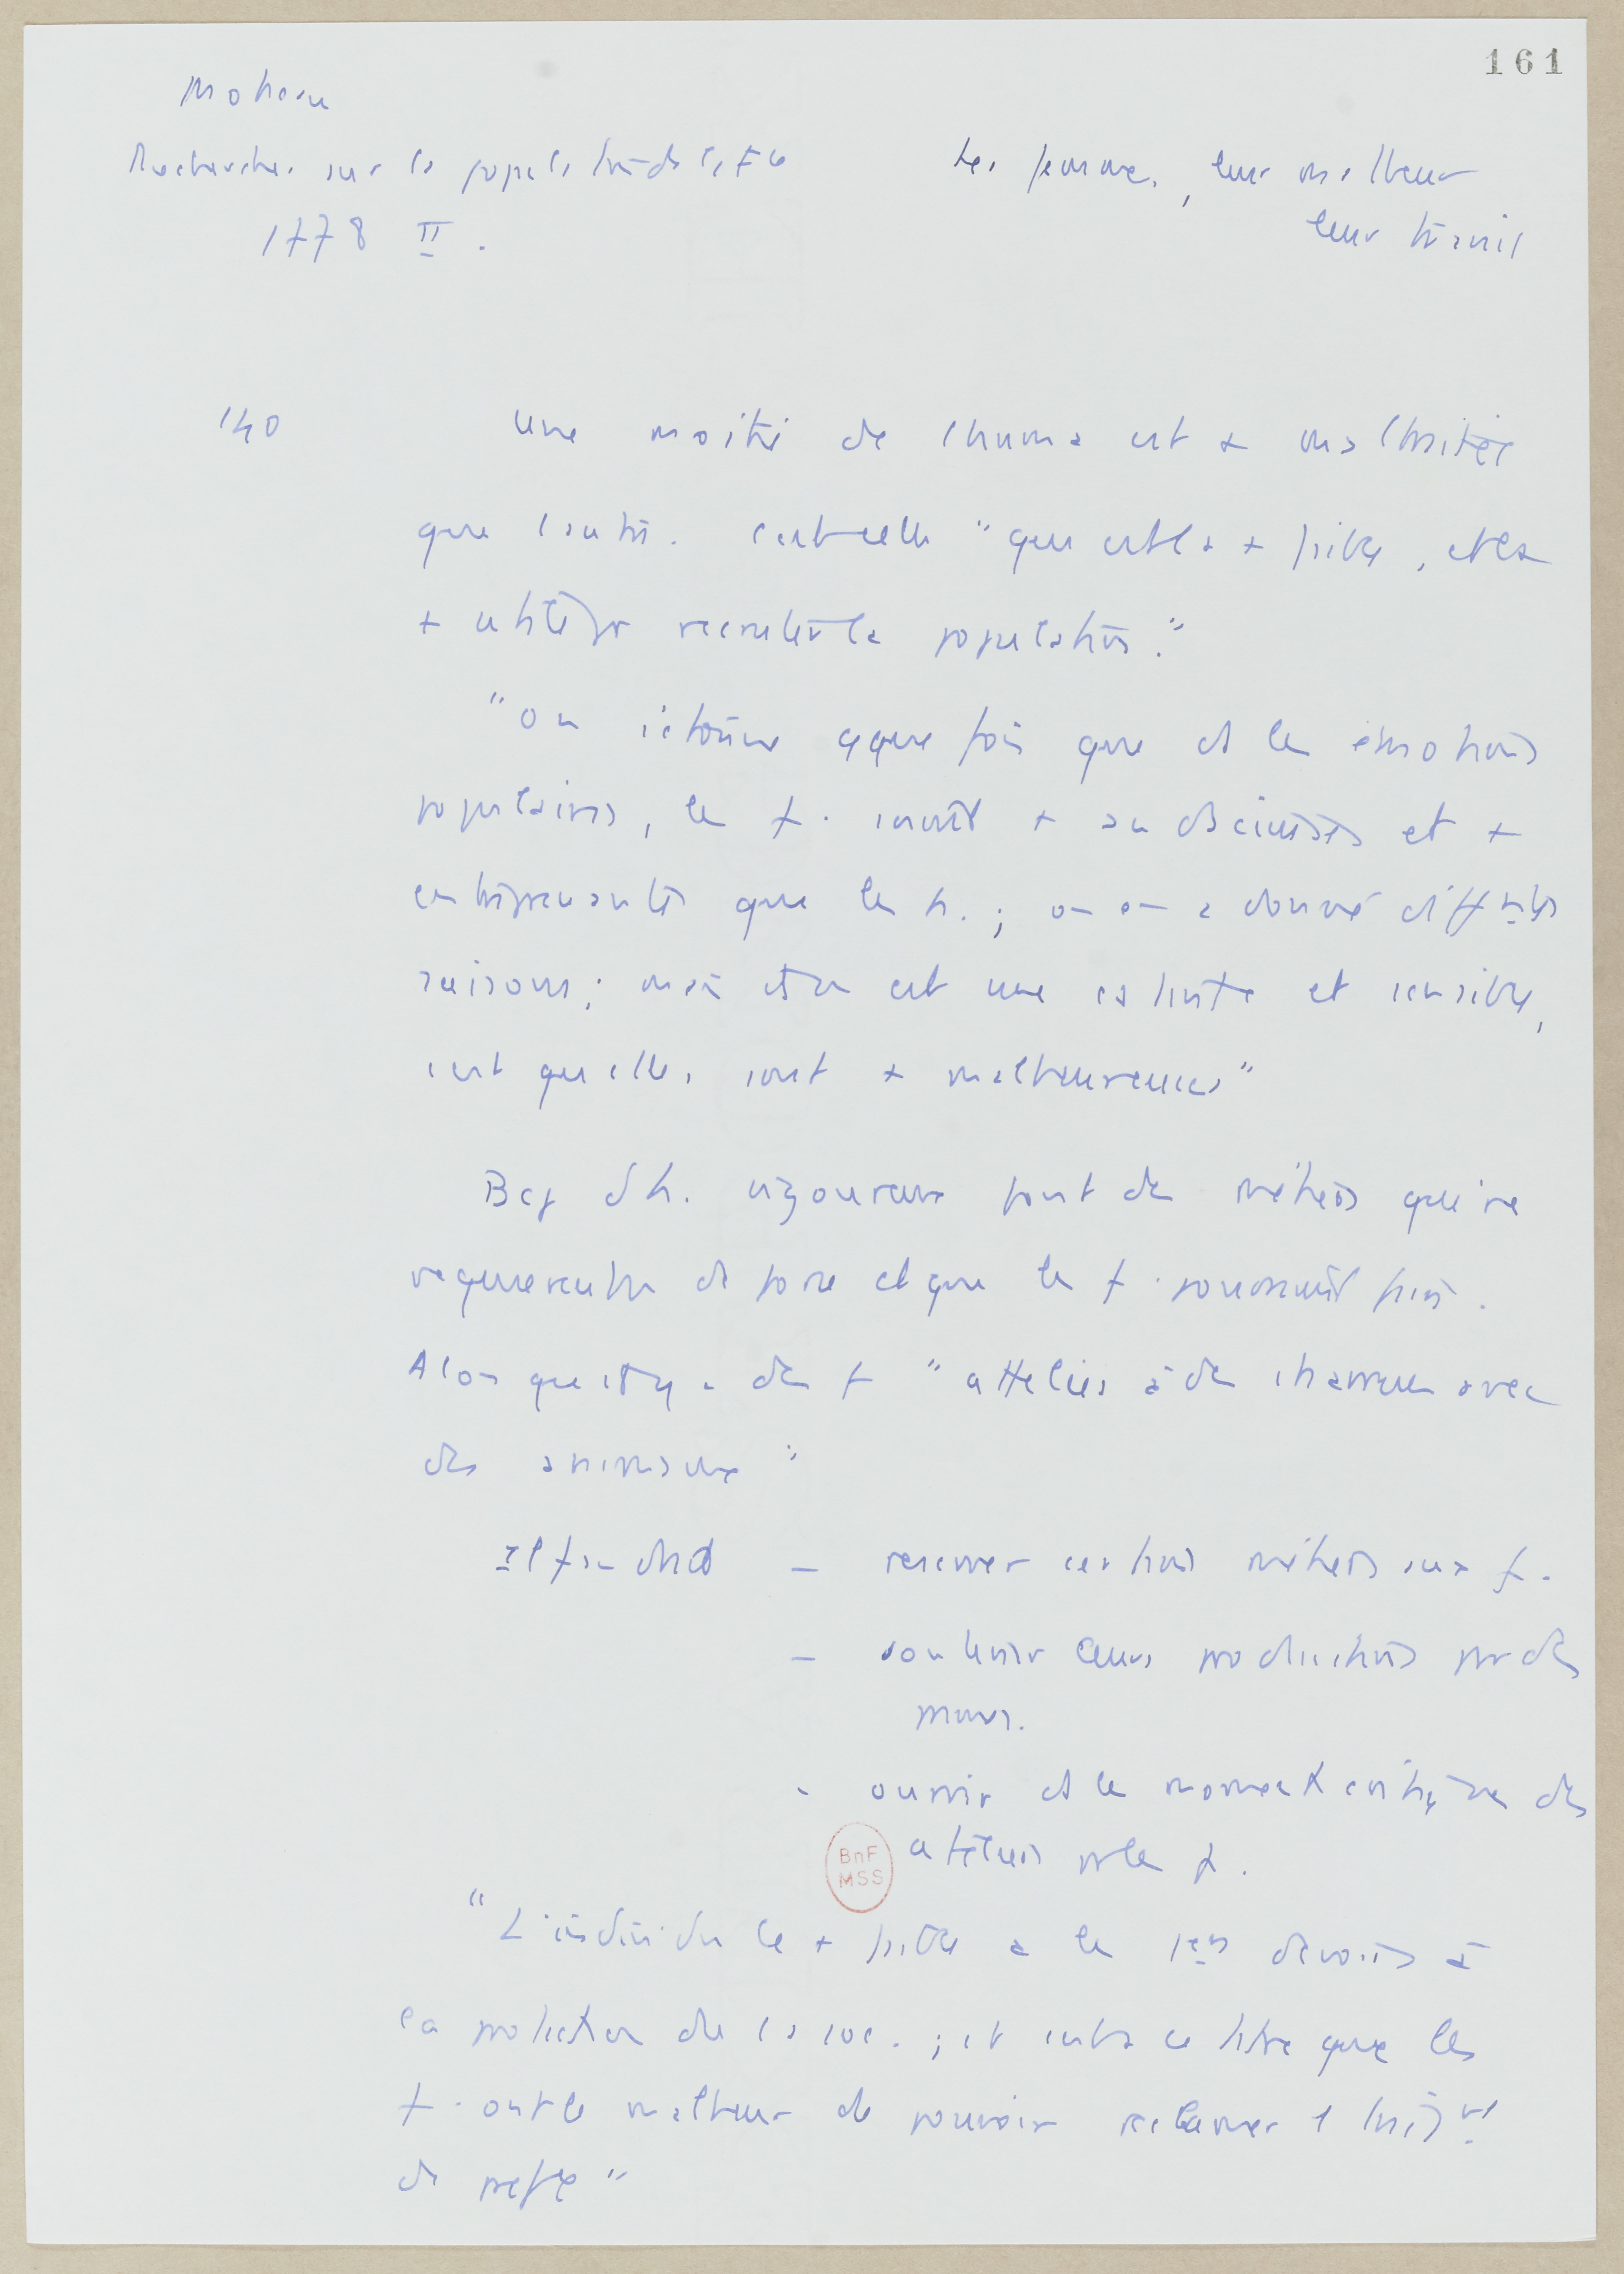 161
Moheau
Recherches sur la popul. de la Fce
1778 II.
Les femmes, leur malheur
leur travail
140
Une moitié de l'huma est + maltraitée
que l'autre. C'est celle "qui est la + faible, et la
+ utile pr recruter la population."
"On s'étonne qque fois que ds les émotions
populaires, les f. soient + audacieuses et + 
entreprenantes que les h. ; on en a donné difftes
raisons ; mais il en est une et sensible,
c'est qu'elles sont + malheureuses"
Bcp d'h. vigoureux font des métiers qui ne
requièrent pas de force et que les f. pourraient faire.
Alors qu'il y a des f "attelées à des charrues avec
des animaux"
Il faudrait – réserver certains métiers aux f.
– soutenir leurs productions par des
– ouvrir ds les moments critiques des
ateliers pr les f.
BnF
MSS
"L'individu le + faible a les 1ers droits à
la protection de la soc. ; et c'est à ce titre que les
f. ont le malheur de pouvoir réclamer 1 trait
de préfce"